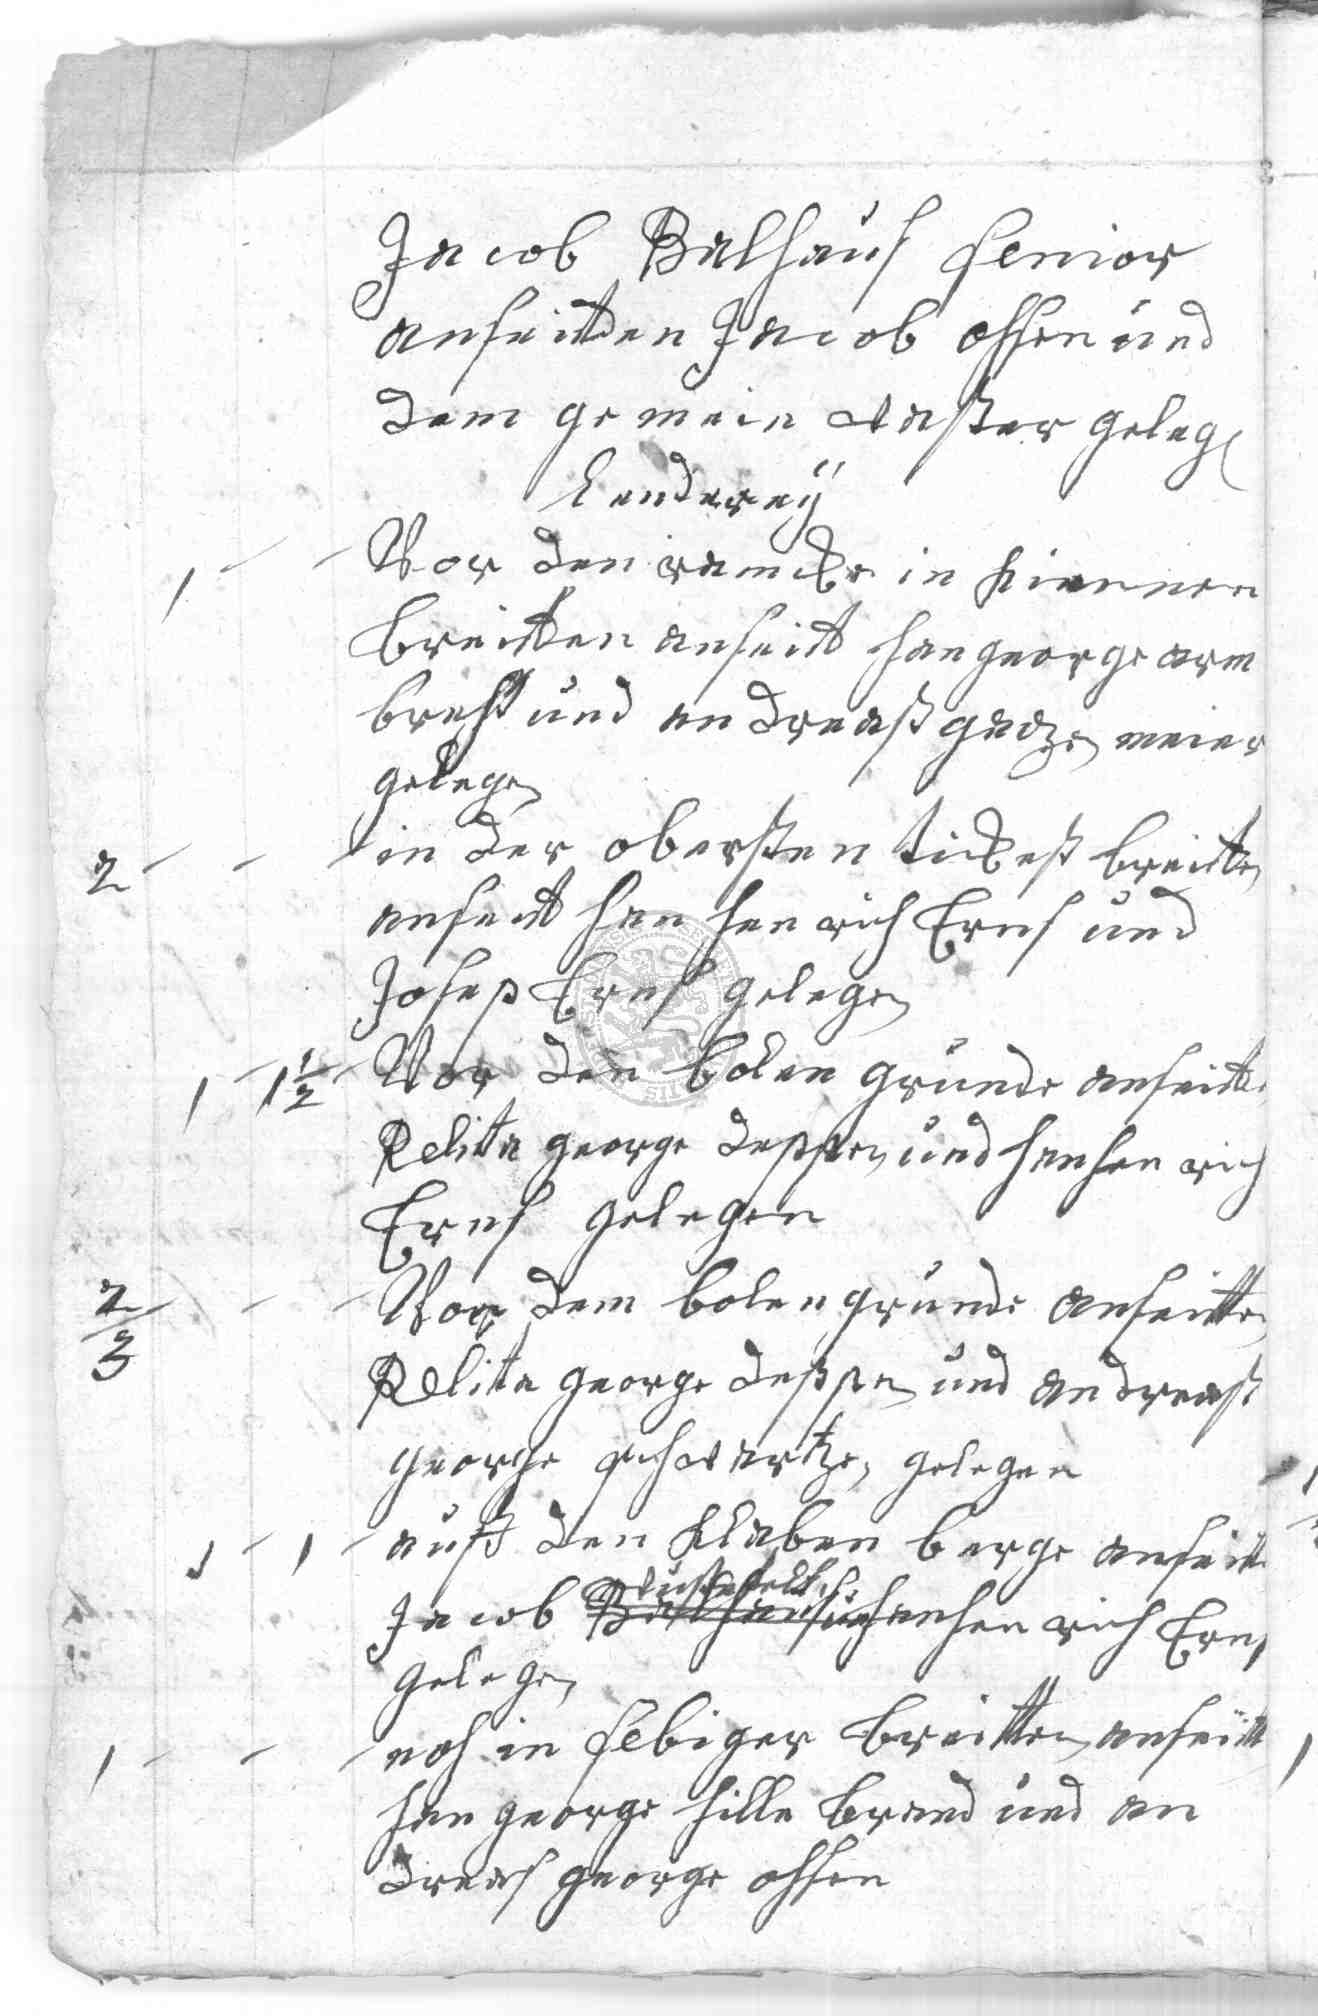 Jacob Balhaus senior
anseitten Jacob Ohsen und
dem gemein waßer geleg
Lenderey
1 - - Vor den in hinnern
breitten anseitt Han george arm
brust und andreaß meier
gelegen
2 - - in der obersten breitten
anseitt Han Henrich Erns und
Josep Erns gelegen
1 - 1 1/2 - Vor den bolen grunde anseitte
Relitta george deppen und Hanhenrich
Erns gelegen
2/3 - - - Vor dem bolengrunde anseitten
Relita george deppen und andreaß
george schwartzen gelegen
1 - 1 - auff den Klaben berge anseitte
Jacob Hanhenrich Erns
gelegen
1 - - - noh in selbiger breitten anseitt
Han george hille brand und an
dreas george ohsen